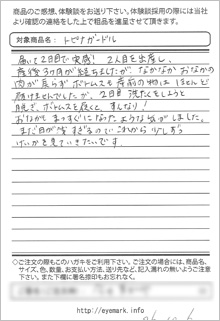 商品のご感想、体験談をお寄せ下さい。体験談採用の際には当社
より確認の連絡をした上で粗品を進呈させて頂きます。
対象商品名：トビナガードル
届いて2日目で実感！ 2人目を出産し、
産後3ヶ月が経ちましたが、なかなかおなかの
肉が戻らずボトムスも産前の物は ほとんど
履けませんでしたが、2日目 洗たくをしようと
脱ぎ、ボトムスを履くと、すんなり！
おなかも まっすぐになったような気がしました。
まだ日が浅すぎるので これから 少しずつ
けいかを見ていきたいです。
◇ご注文の際もこのハガキをご利用下さい。ご注文の場合には、商品名、
サイズ、色、数量、お支払い方法、送り先など、記入漏れの無いようご注意
下さい。また下欄に署名捺印もお忘れなく。
http://eyemark.info